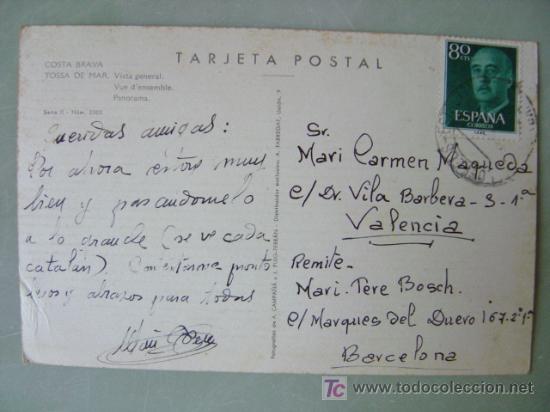 COSTA BRAVA
TOSSA DE MAR. Vista general.
Vue d'ensemble.
Panorama.
Serie II - Núm.
TARJETA POSTAL
80 CTS
ESPAÑA
CORREOS
Queridas amigas:
Por ahora estoy muy
bien y pasandomelo
a lo grande (se ve cada
catalán). Contestarme pronto
besos y abrazos para todas
Sr.
Mari Carmen Maqueda
c/ Dr. Vila Barbera - 3 - 1ª
Valencia
Remite-
Mari-Tere Bosch.
c/ Marques del Duero 167-2º1ª
Barcelona
Fotografías de A. CAMPAÑÁ y J. PUIG-FERRÁN - Distribuidor exclusivo: A. FABREGAT, Unión, 9
todocoleccion
http://www.todocoleccion.net